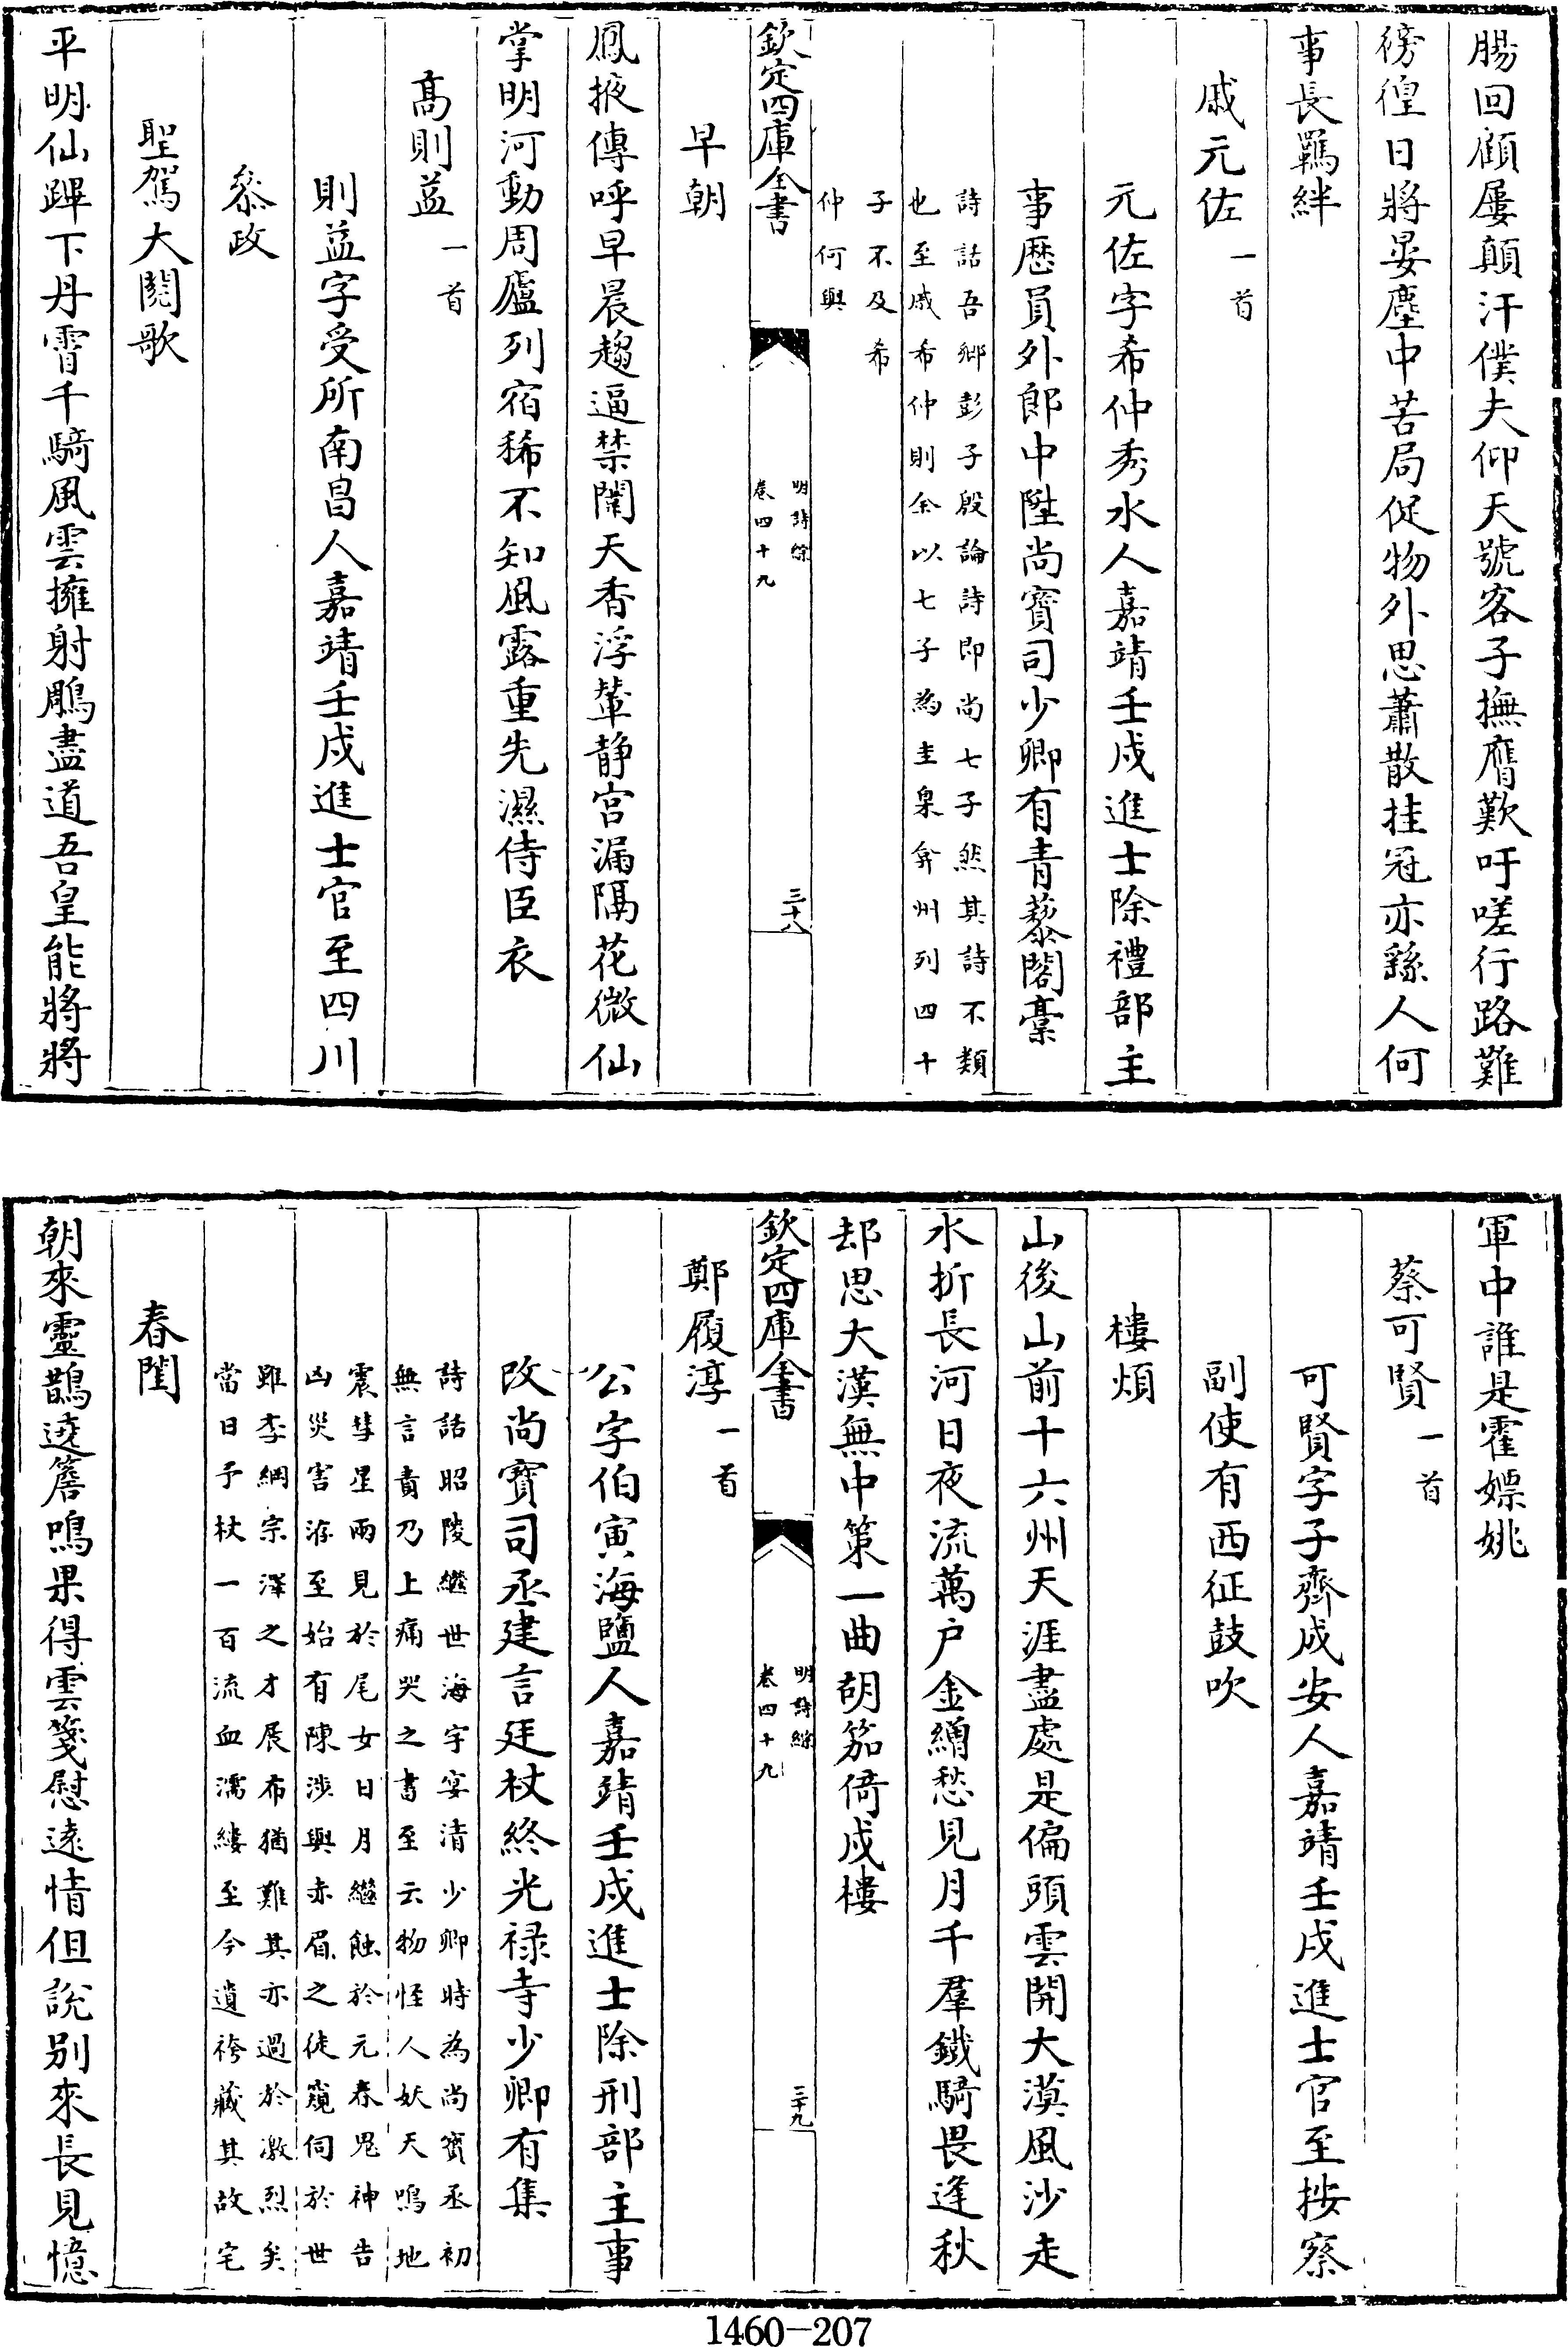 腸回顧屢顛汗僕夫仰天號客子撫膺歎吁嗟行路難
徬徨日將晏塵中苦局促物外思蕭散挂冠亦繇人何
事長羈絆
戚元佐一首
元佐字希仲秀水人嘉靖壬戌進士除禮部主
事歷員外郎中陞尚寳司少卿有青藜閣稾
詩話吾鄉彭子殷論詩即尚七子然其詩不類
也至戚希仲則全以七子為圭臬弇州列四十
子不及希
仲何與
欽定四庫全書
明詩綜
卷四十九
三十八
早朝
鳳掖傳呼早晨趨逼禁闈天香浮輦静宫漏隔花微仙
掌明河動周廬列宿稀不知風露重先濕侍臣衣
髙則益一首
則益字受所南昌人嘉靖壬戌進士官至四川
叅政
聖駕大閱歌
平明仙蹕下丹霄千騎風雲擁射鵰盡道吾皇能將將
軍中誰是霍嫖姚
蔡可賢一首
可賢字子齊成安人嘉靖壬戌進士官至按察
副使有西征鼓吹
樓煩
山後山前十六州天涯盡處是偏頭雲開大漠風沙走
水折長河日夜流萬户金繒愁見月千羣鐵騎畏逢秋
却思大漢無中策一曲胡笳倚戍樓
欽定四庫全書
明詩綜
卷四十九
三十九
鄭履淳一首
公字伯寅海鹽人嘉靖壬戌進士除刑部主事
改尚寳司丞建言廷杖終光禄寺少卿有集
詩話昭陵繼世海宇宴清少卿時為尚寳丞初
無言責乃上痛哭之書至云物怪人妖天鳴地
震彗星兩見於尾女日月繼蝕於元春鬼神告
凶災害洊至始有陳涉與赤眉之徒窺伺於世
雖李綱宗澤之才展布猶難其亦過於激烈矣
當日予杖一百流血濡縷至今遺袴藏其故宅
春閨
朝來靈鵲遶簷鳴果得雲箋慰遠情但說别來長見憶
1460-207